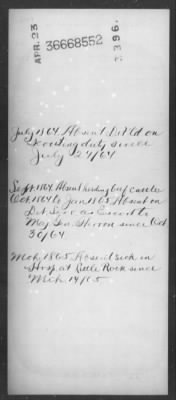 APR. 23
36668552
396.
July 1864 Absent Det'd on
Scouting duty since
July 27/64
Sept 1864 Absent herding Beef cattle
Oct 1864 to Jan 1865 Absent on
Det. Serv. as Escort to
Maj Gen. Herron since Oct
30/64
Mch 1865 Absent sick in
Hosp. at Little Rock since
Mch 14/65